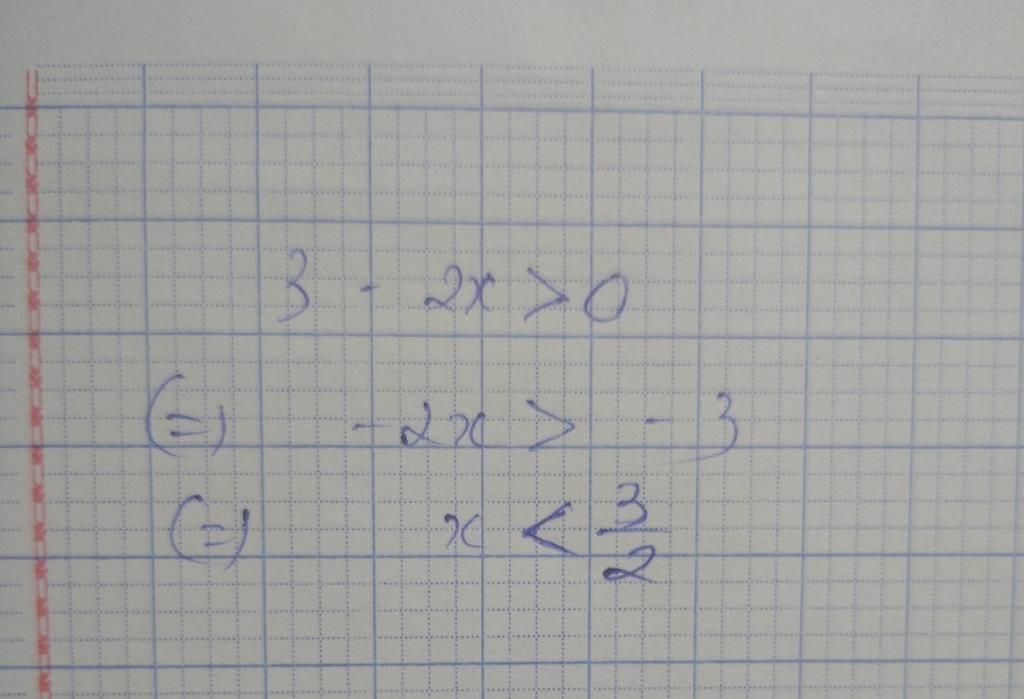 3 - 2x > 0
(=) -2x > -3
(=) x < 3/2